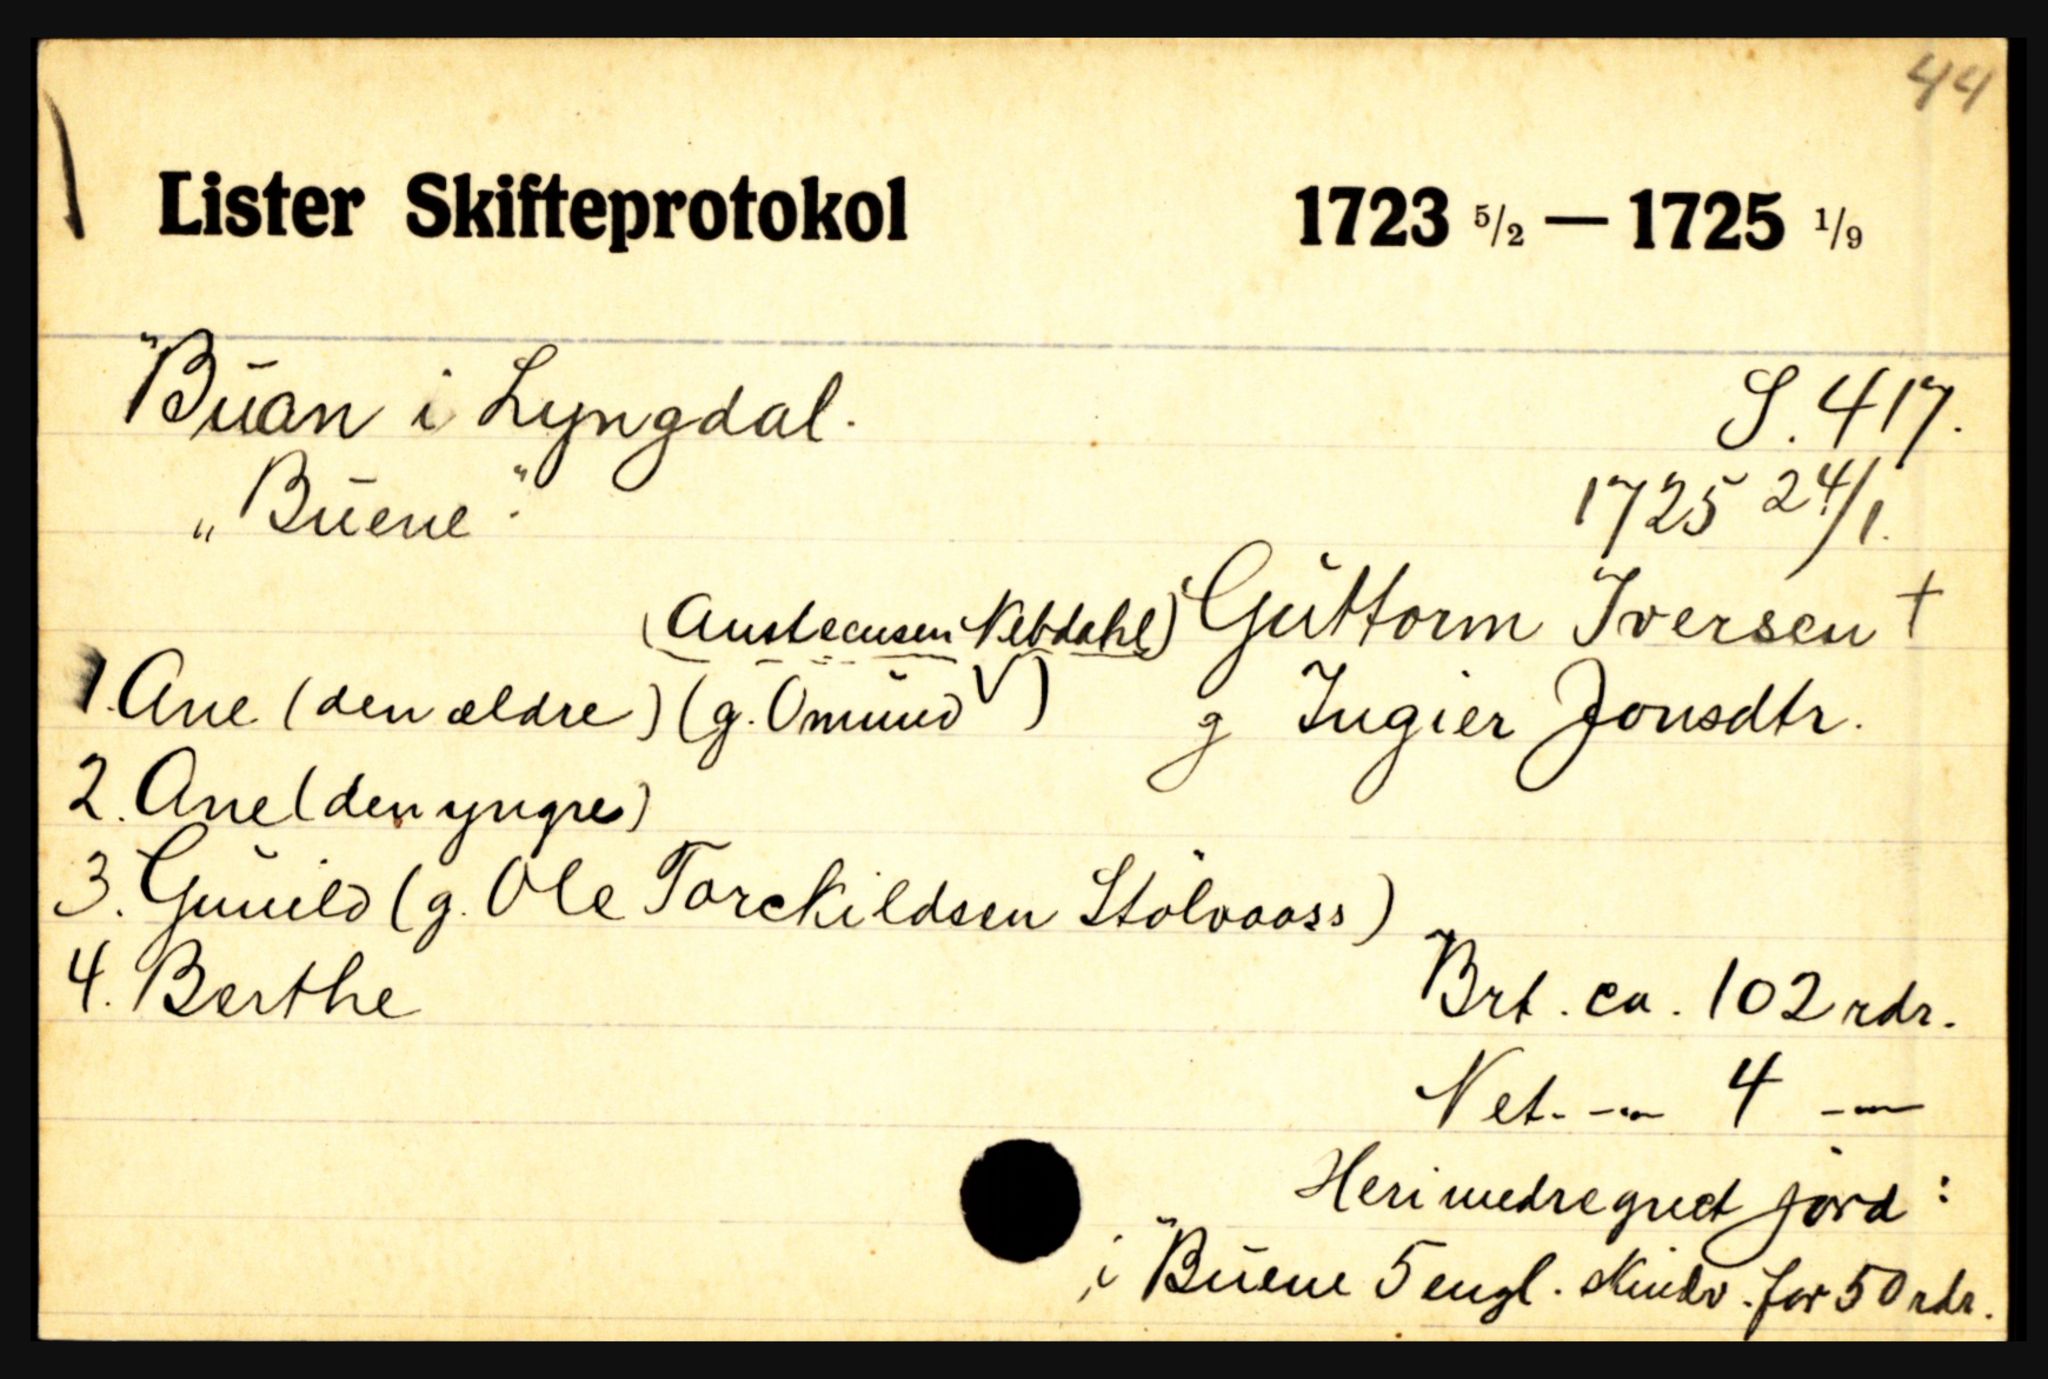 44
Lister Skifteprotokol 1723 5/2 — 1725 1/9
Buan i Lyngdal. S. 417.
„Buene". 1725 24/1.
Guttorm Iversen †
g Ingier Jonsdtr.
(Austensen Nebdahl)
1. Ane (den ældre) (g. Omund V)
2. Ane (den yngre)
3. Gunild (g. Ole Torckildsen Stölvaass)
4. Berthe
Brt. ca. 102 rdr.
Net. -"- 4 -"-
Heri medregnet jord:
i Buene 5 engl. skindv. for 50 rdr.